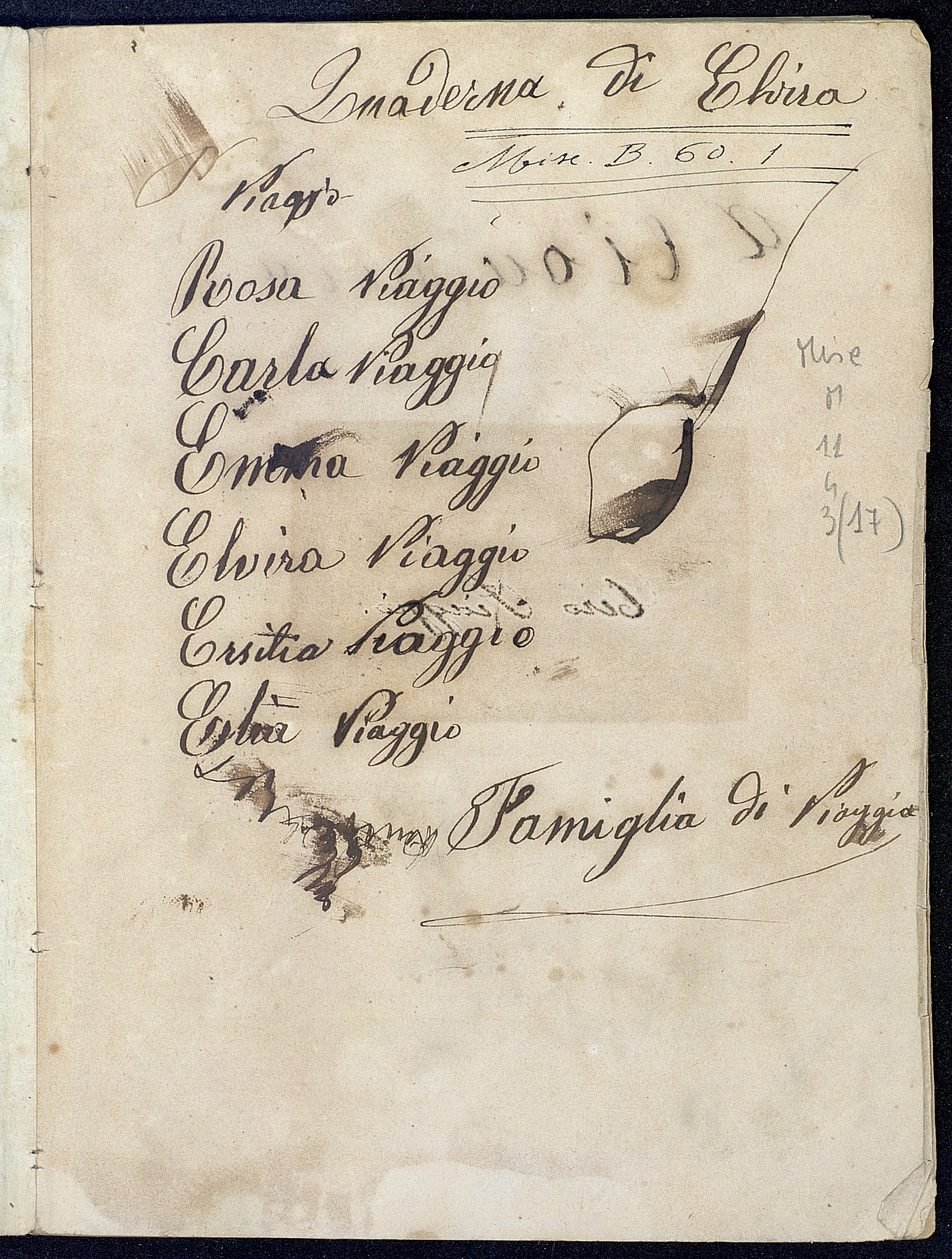 Quaderna di Elvira
Misc. B. 60. 1
Viaggio
Rosa Viaggio
Carla Viaggio
Emma Viaggio
Elvira Viaggio
Ersilia Viaggio
Viaggio
Famiglia di Viaggio
Misc
11
3(17)